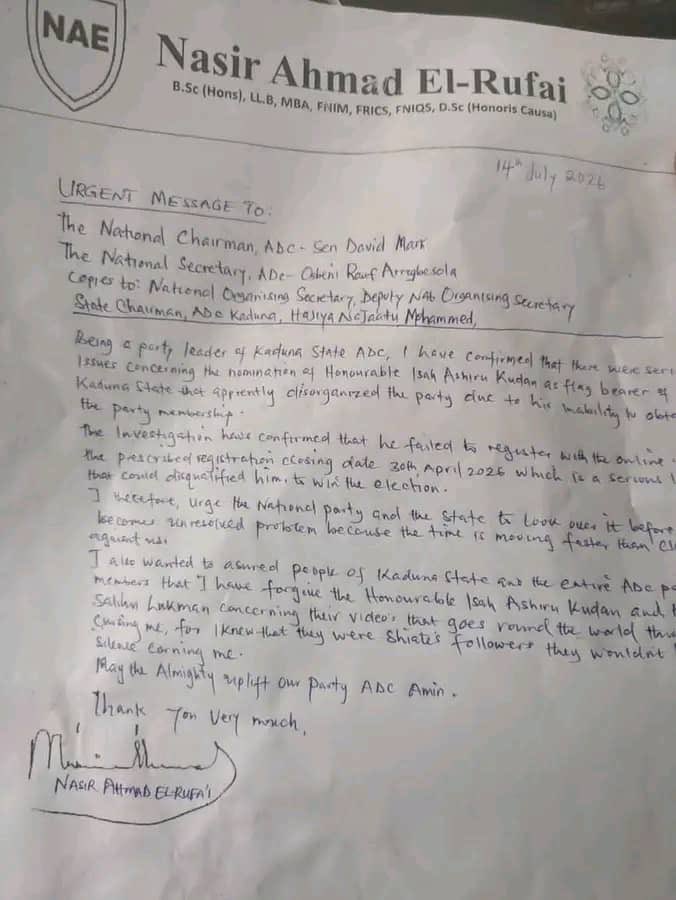 NAE
Nasir Ahmad El-Rufai
B.Sc (Hons), LL.B, MBA, FNIM, FRICS, FNIQS, D.Sc (Honoris Causa)
14th July 2026
URGENT MESSAGE TO:
The National Chairman, ADC - Sen David Mark
The National Secretary, ADC - Ogbeni Rauf Arregbesola
Copies to: National Organising Secretary, Deputy Nat Organising Secretary
State Chairman, ADC Kaduna, Hajiya Najaatu Mohammed,
Being a party leader of Kaduna State ADC, I have confirmed that there were
Issues concerning the nomination of Honourable Isah Ashiru Kudan as flag bearer of
Kaduna State that apprently disorganized the party due to his inability to
the party membership.
The Investigation have confirmed that he failed to register with the online
the prescribed registration closing date 30th April 2026 which is a serious
that could disqualified him, to win the election.
I therefore, urge the National party and the state to look over it before
becomes unresolved problem because the time is moving faster than
against us.
I also wanted to asured people of Kaduna State and the entire ADC
members that I have forgive the Honourable Isah Ashiru Kudan and
Salihu Lukman concerning their video's that goes round the world
cursing me, for I knew that they were Shiate's followers they wouldn't
silence corning me.
May the Almighty uplift our party ADC Amin.
Thank You Very much,
NASIR AHMAD EL-RUFA'I